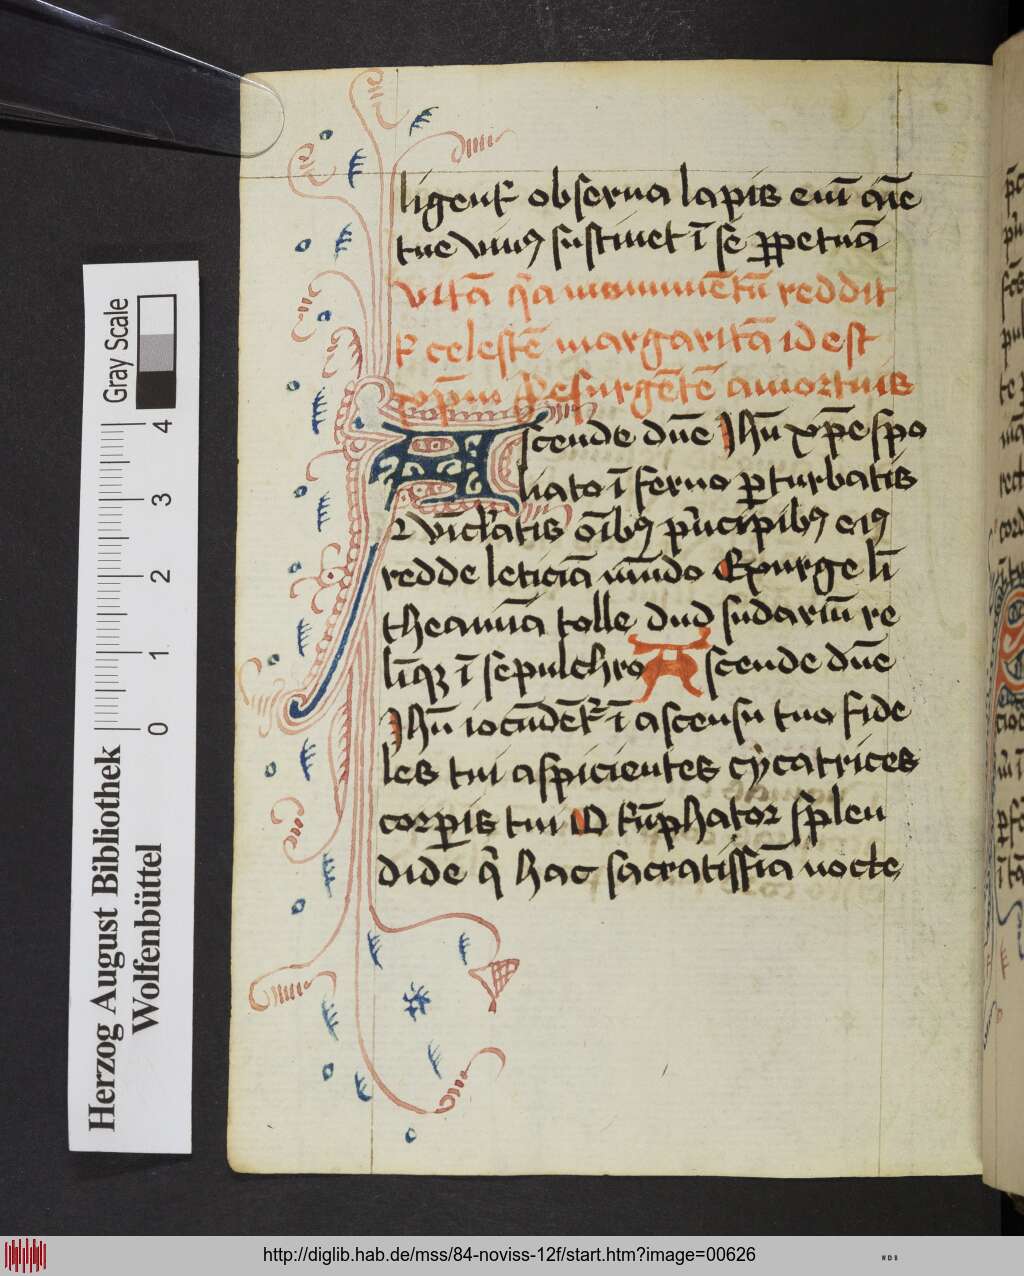 ligent᷑ obserua lapis eni̅ aı̅e
tue viuꝰ sustinet ı̅ se ꝑpetua̅
vita̅ qͥa monume̅tu̅ reddit
celeste̅ margarita̅ id est
xp̅m resurge̅te̅ a mortuis
Ascende dn̅e Jhu̅ xp̅e spo
liato ı̅ ferno ꝑturbatis
⁊ vı̅cl'atis oı̅bꝰ pͥncipibꝰ eiꝰ
redde leticia̅ mu̅do Expurge li̅
theamı̅a tolle dud sudariu̅ re
lı̅qꝫ ı̅ sepulchro Ascende dn̅e
Jhu̅ iocu̅det᷑ ı̅ ascensu tuo fide
les tui aspicientes cycatrices
corꝑis tui O tͥu̅phator sple̅n
dide qͥ hac sacratissı̅a nocte
Herzog August Bibliothek
Wolfenbüttel
0 1 2 3 4
Gray Scale
http://diglib.hab.de/mss/84-noviss-12f/start.htm?image=00626